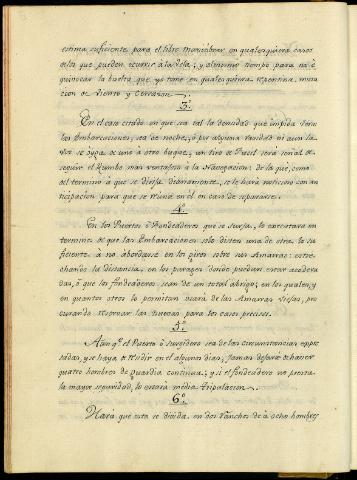 estima suficiente para el libre maniobrar en qualesquiera casos
en los que pueden recurrir a la Vela; y al mismo tiempo para no e
quivocar la buelta que yo tome en qualesquiera repentina muta
cion de viento y cerrazon.
3ª
En el caso citado en que sea tal la densidad que impida verse
las Embarcaciones, sea de noche, ó por alguna
se oyga de uno á otro buque, un tiro de Fusil será señal de
seguir el Rumbo mas ventajoso á la Navegacion; de la qué, como
del termino á que se dirija diariamente, se le hará noticioso con an
ticipacion para que se reuna en él en caso de separarse.
4ª
En los Puertos ó Fondeaderos que se surja, lo executará en
terminos de que las Embarcaciones solo disten una de otra lo su
ficiente á no abordarse en los giros sobre sus Amarras: estre
chando la distancia, en los parages donde puedan estar acodera
das, ó que los fondeaderos sean de un total abrigo; en los quales, y
en quantos otros lo permitan usará de las Amarras viejas, pro
curando reservar las nuevas para los casos precisos.
5ª
Aunqᵉ el Puerto ó surgidero sea de las circunstancias expre
sadas, y se haya de residir en el algunos dias, jamas dejará de haver
quatro hombres de Guardia continua; y si el fondeadero no presta
la mayor seguridad, lo estará media tripulacion.
6ª
Hará que esta se divida en dos Ranchos de á ocho hombres